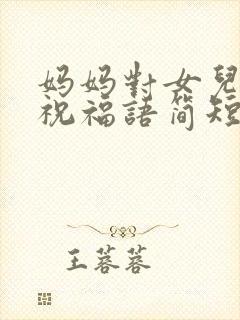 妈妈對女兒
祝福語簡短
王蓉蓉